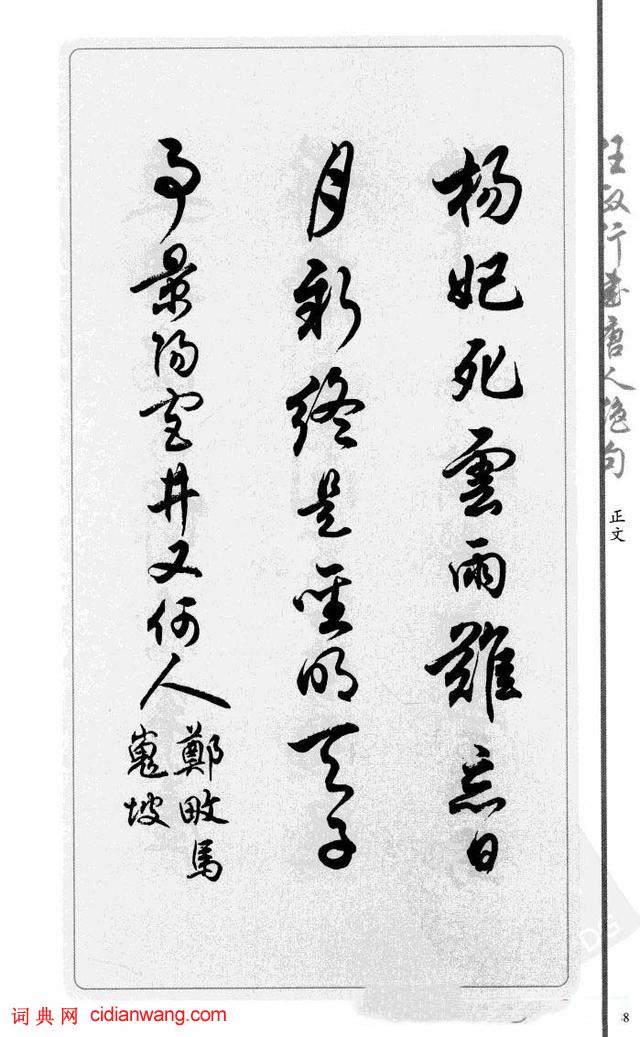 楊妃死雲雨難忘日
月新終是聖明天子
事景陽宮井又何人
鄭畋馬
嵬坡
任政行书唐人绝句
正文
8
词典网 cidianwang.com